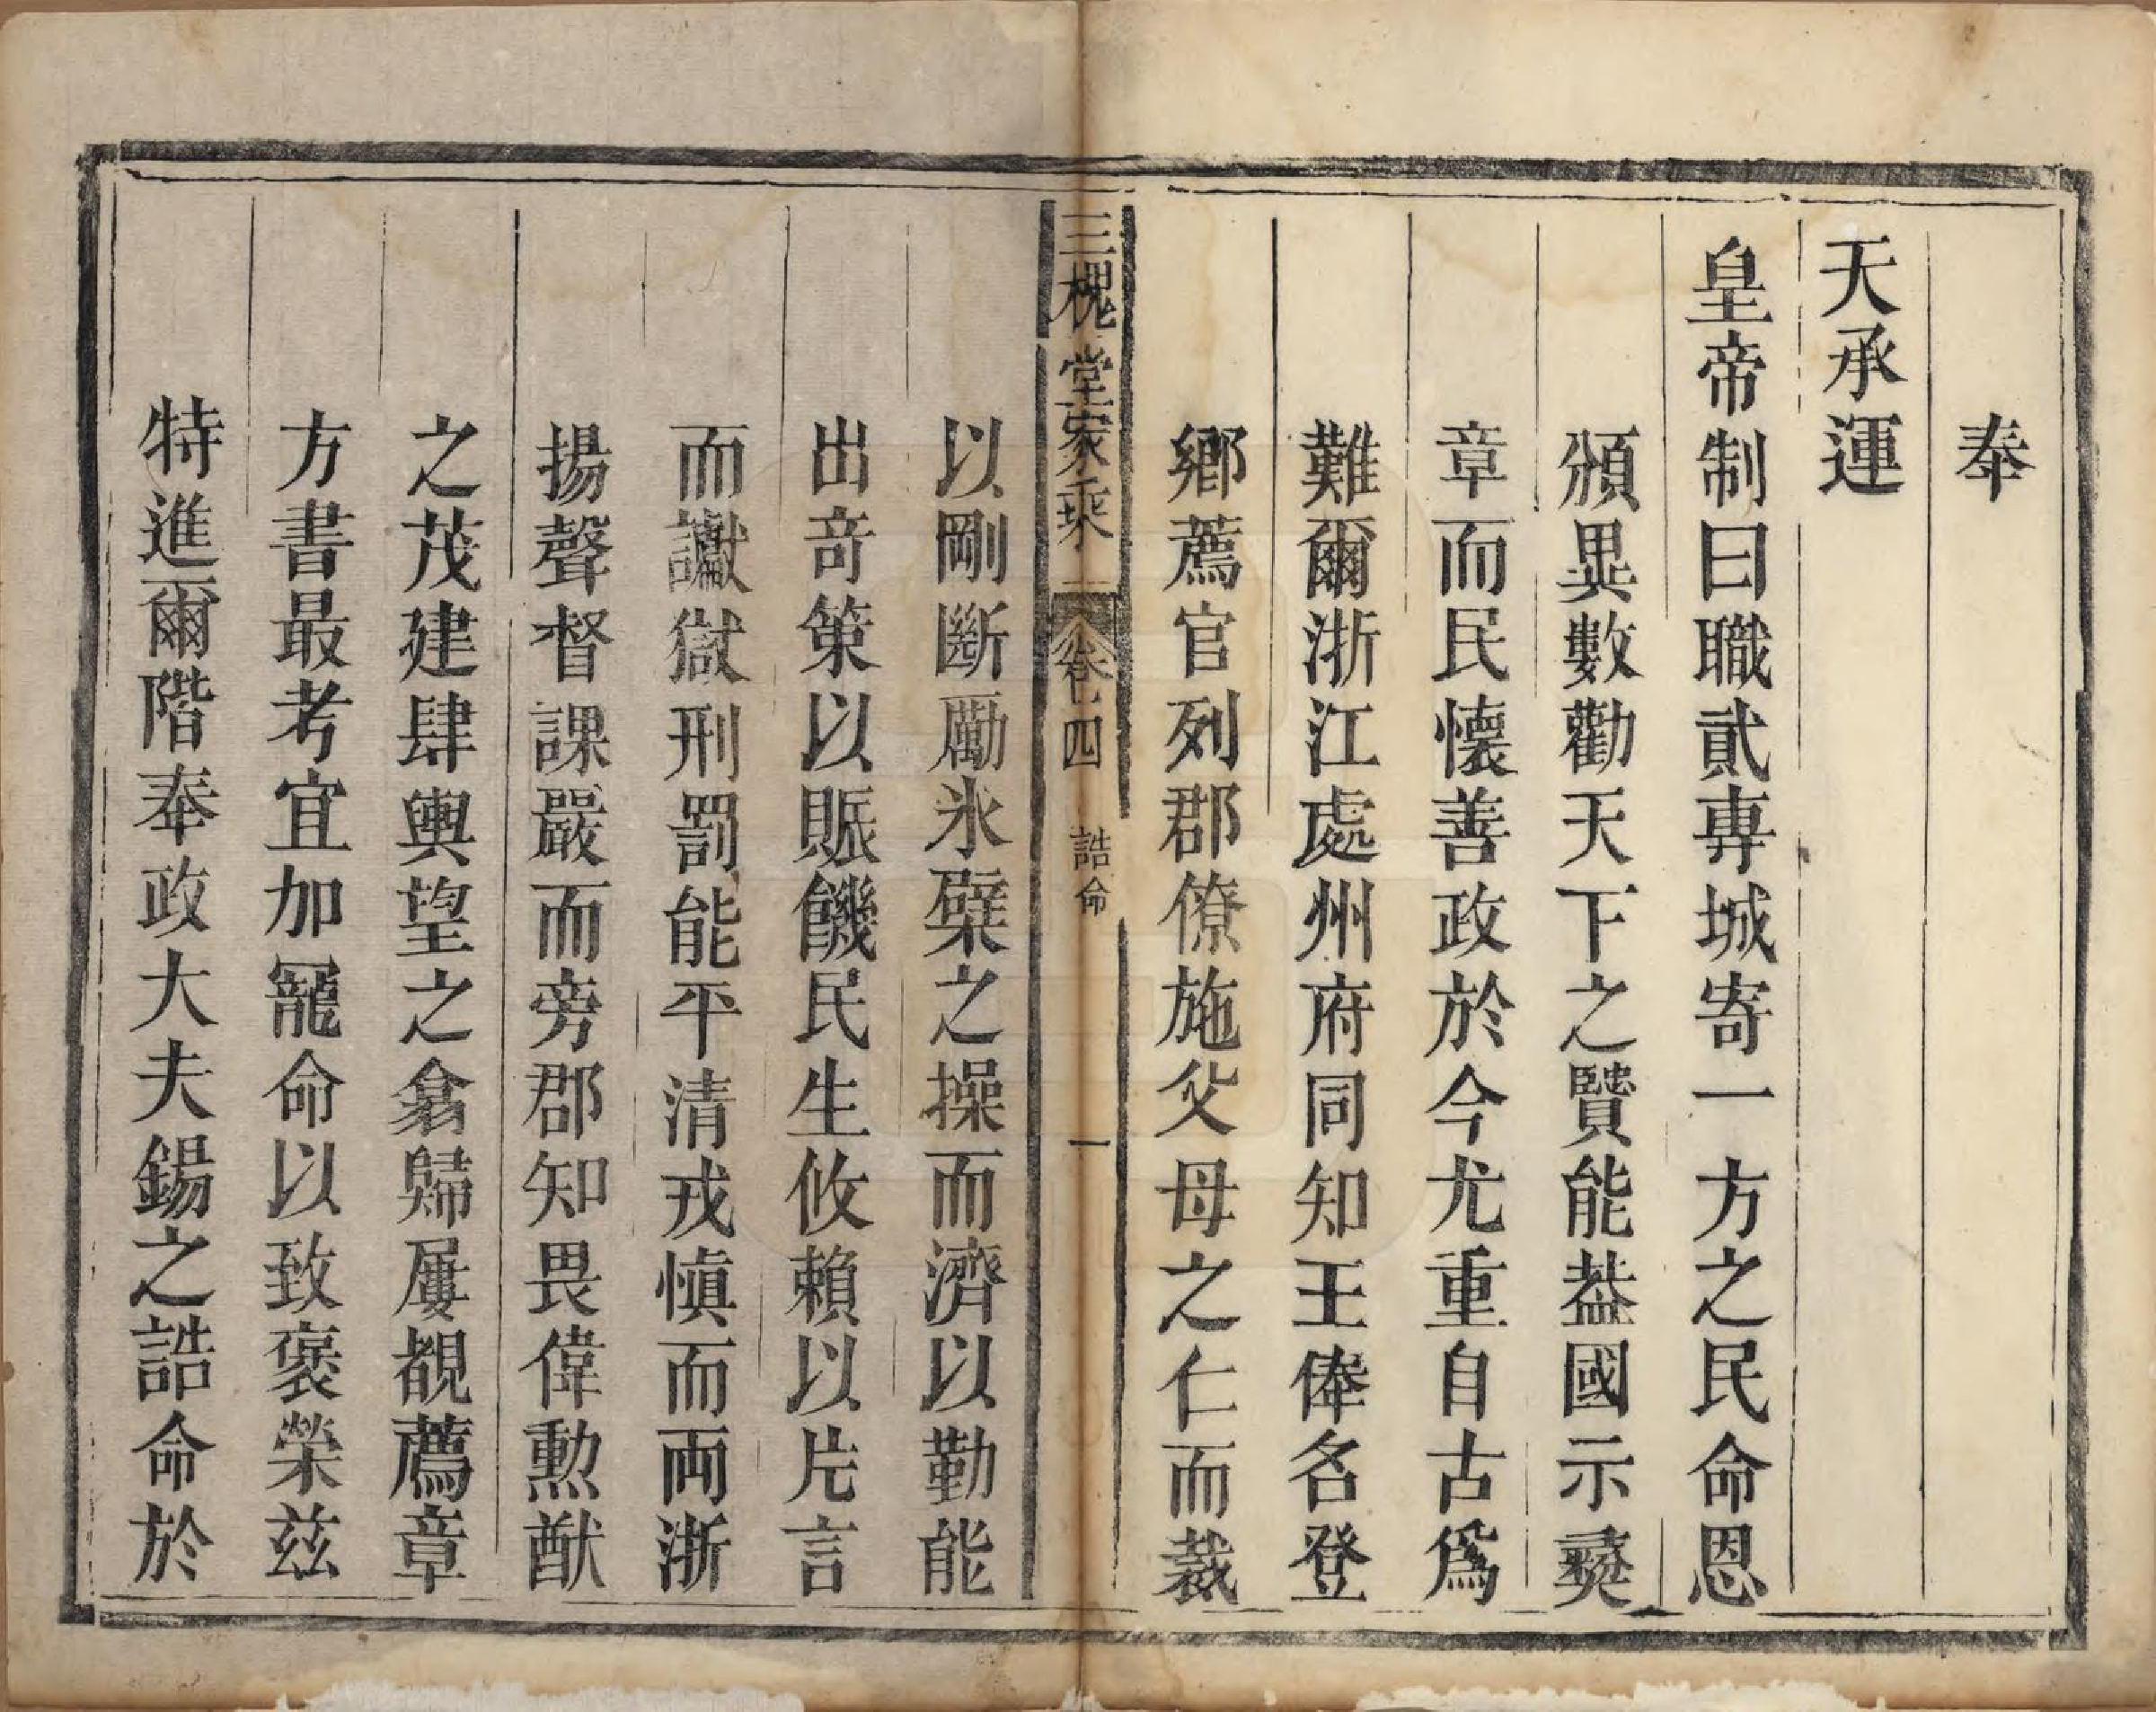 奉
天承運
皇帝制曰職貳專城寄一方之民命恩
頒異數勸天下之賢能葢國示㣲
章而民懷善政於今尤重自古爲
難爾浙江處州府同知王俸名登
鄉薦官列郡僚施父母之仁而裁
三槐堂家乘 卷四 誥命 一
以剛斷勵氷檗之操而濟以勤能
出竒策以賑饑民生攸賴以片言
而讞獄刑罰能平清戎愼而兩浙
揚聲督課嚴而旁郡知畏偉勲猷
之茂建肆輿望之翕歸屢覩薦章
方書最考宜加寵命以致褒榮兹
特進爾階奉政大夫錫之誥命於